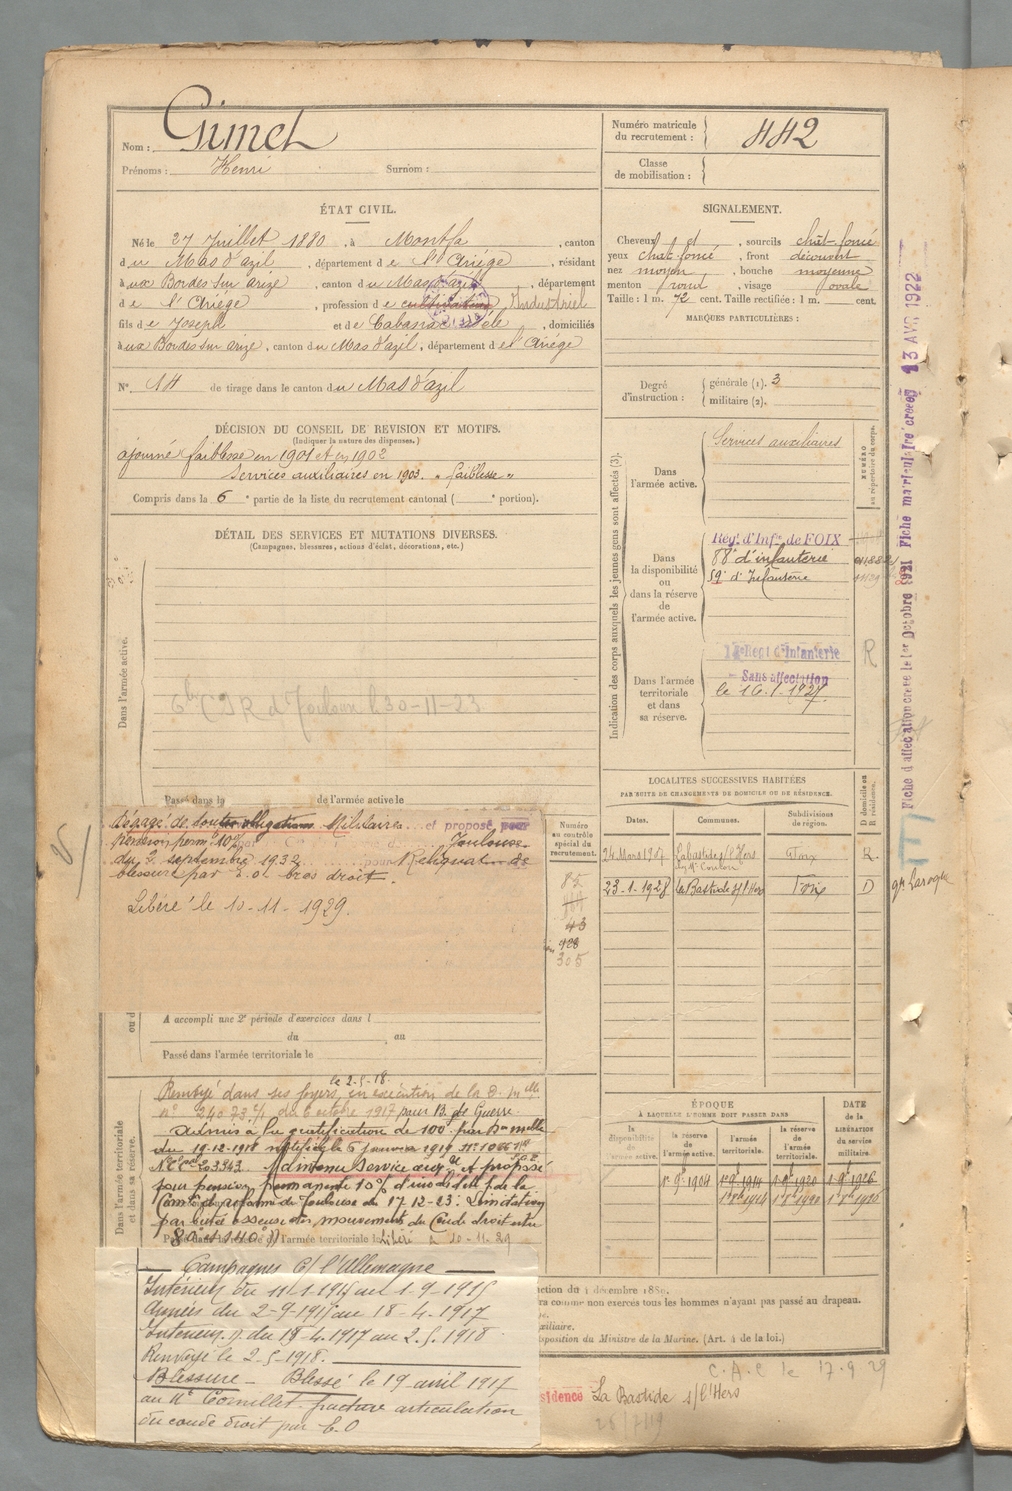 Nom : Gimet
Prénoms : Henri Surnom :
Numéro matricule du recrutement : 442
Classe de mobilisation :
ÉTAT CIVIL.
Né le 27 Juillet 1880, à Montfa, canton
du Mas d'azil, département de l'Ariége, résidant
aux Bordes sur arize, canton du Mas d'azil, département
de l'Ariege, profession de cultivateur Industriel
fils de Joseph et de Cabanac Adèle, domiciliés
aux Bordes sur arize, canton du Mas d'azil, département de l'Ariége
N° 14 de tirage dans le canton du Mas d'azil
DÉCISION DU CONSEIL DE REVISION ET MOTIFS.
(Indiquer la nature des dispenses.)
ajourné faiblesse en 1901 et en 1902
Services auxiliaires en 1903. "faiblesse"
Compris dans la 6e partie de la liste du recrutement cantonal ( e portion).
DÉTAIL DES SERVICES ET MUTATIONS DIVERSES.
(Campagnes, blessures, actions d'éclat, décorations, etc.)
Dans l'armée active.
Toulouse le 30-11-23
Passé dans la de l'armée active le
Dégagé de toutes obligations Militaires et proposé pour
pension perm. 10%
Toulouse
du 5 septembre 1932 pour Reliquat de
blessure par E.O. bras droit.
Libéré le 10-11-1929.
Numéro au contrôle spécial du recrutement.
85
43
428
305
A accompli une 2e période d'exercices dans l
du au
Passé dans l'armée territoriale le
Dans l'armée territoriale et dans sa réserve.
le 2-5-18
Renvoyé dans ses foyers, en exécution de la D. M.
n° 24073 c/1 du 6 octobre 1917 pour B. de Guerre.
Admis à la gratification de 100f par Don mlle
du 19-12-1918 notifiée le 6 janvier 1919
Maintenu Service auxre et proposé
pour pension permanente 10% d'invalidité p. de la
Comon de réforme de Toulouse du 17-12-23. Limitation
par butée osseuse des mouvements du Coude droit entre
80° et 140°
Passé dans la réserve de l'armée territoriale le Libéré le 10-11-29
Campagnes C/ l'Allemagne
Intérieur du 11-1-1915 au 1-9-1915
Armées du 2-9-1915 au 18-4-1917
Intérieur du 18-4-1917 au 2-5-1918
Renvoyé le 2-5-1918.
Blessure - Blessé le 19 avril 1917
au Mt Cornillet fracture articulation
du coude droit par E.O
SIGNALEMENT.
Cheveux et , sourcils chât-foncé
yeux chat-foncé, front découvert
nez moyen, bouche moyenne
menton rond, visage ovale
Taille : 1 m. 72 cent. Taille rectifiée : 1 m. cent.
MARQUES PARTICULIÈRES :
Degré d'instruction : générale (1). 3
militaire (2).
Indication des corps auxquels les jeunes gens sont affectés (3).
NUMÉRO au répertoire du corps.
Dans l'armée active. Services auxiliaires
Dans la disponibilité ou dans la réserve de l'armée active.
Rég. d'Infie de FOIX
88e d'infanterie
59e d'Infanterie
Dans l'armée territoriale et dans sa réserve.
Regt d'Infanterie
Sans affectation
le 16.1.1927.
R
LOCALITÉS SUCCESSIVES HABITÉES
PAR SUITE DE CHANGEMENTS DE DOMICILE OU DE RÉSIDENCE.
Dates. Communes. Subdivisions de région. D domicile ou R résidence.
24 Mars 1907 Labastide s/l'Hers Foix R.
23-1-1928 La Bastide s/l'Hers Foix D
ÉPOQUE
À LAQUELLE L'HOMME DOIT PASSER DANS
DATE de la LIBÉRATION du service militaire.
la disponibilité de l'armée active. la réserve de l'armée active. l'armée territoriale. la réserve de l'armée territoriale.
1er 9bre 1904 1er 9bre 1914 1er 9bre 1920 1er 9bre 1926
ction du 4 décembre 1889.
ra comme non exercés tous les hommes n'ayant pas passé au drapeau.
xiliaire.
sposition du Ministre de la Marine. (Art. 4 de la loi.)
C.A.C le 17.9.29
sidence La Bastide s/l'Hers
Fiche d'affectation créée le 1er Octobre 1921 Fiche matriculaire créée 13 AVR 1922